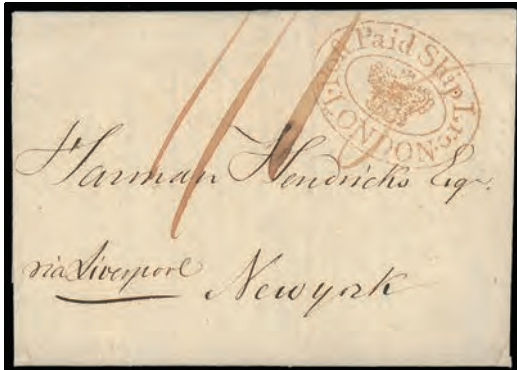 Post Paid Ship Lre
LONDON
Harman Hendricks Esqr.
via Liverpool
Newyork